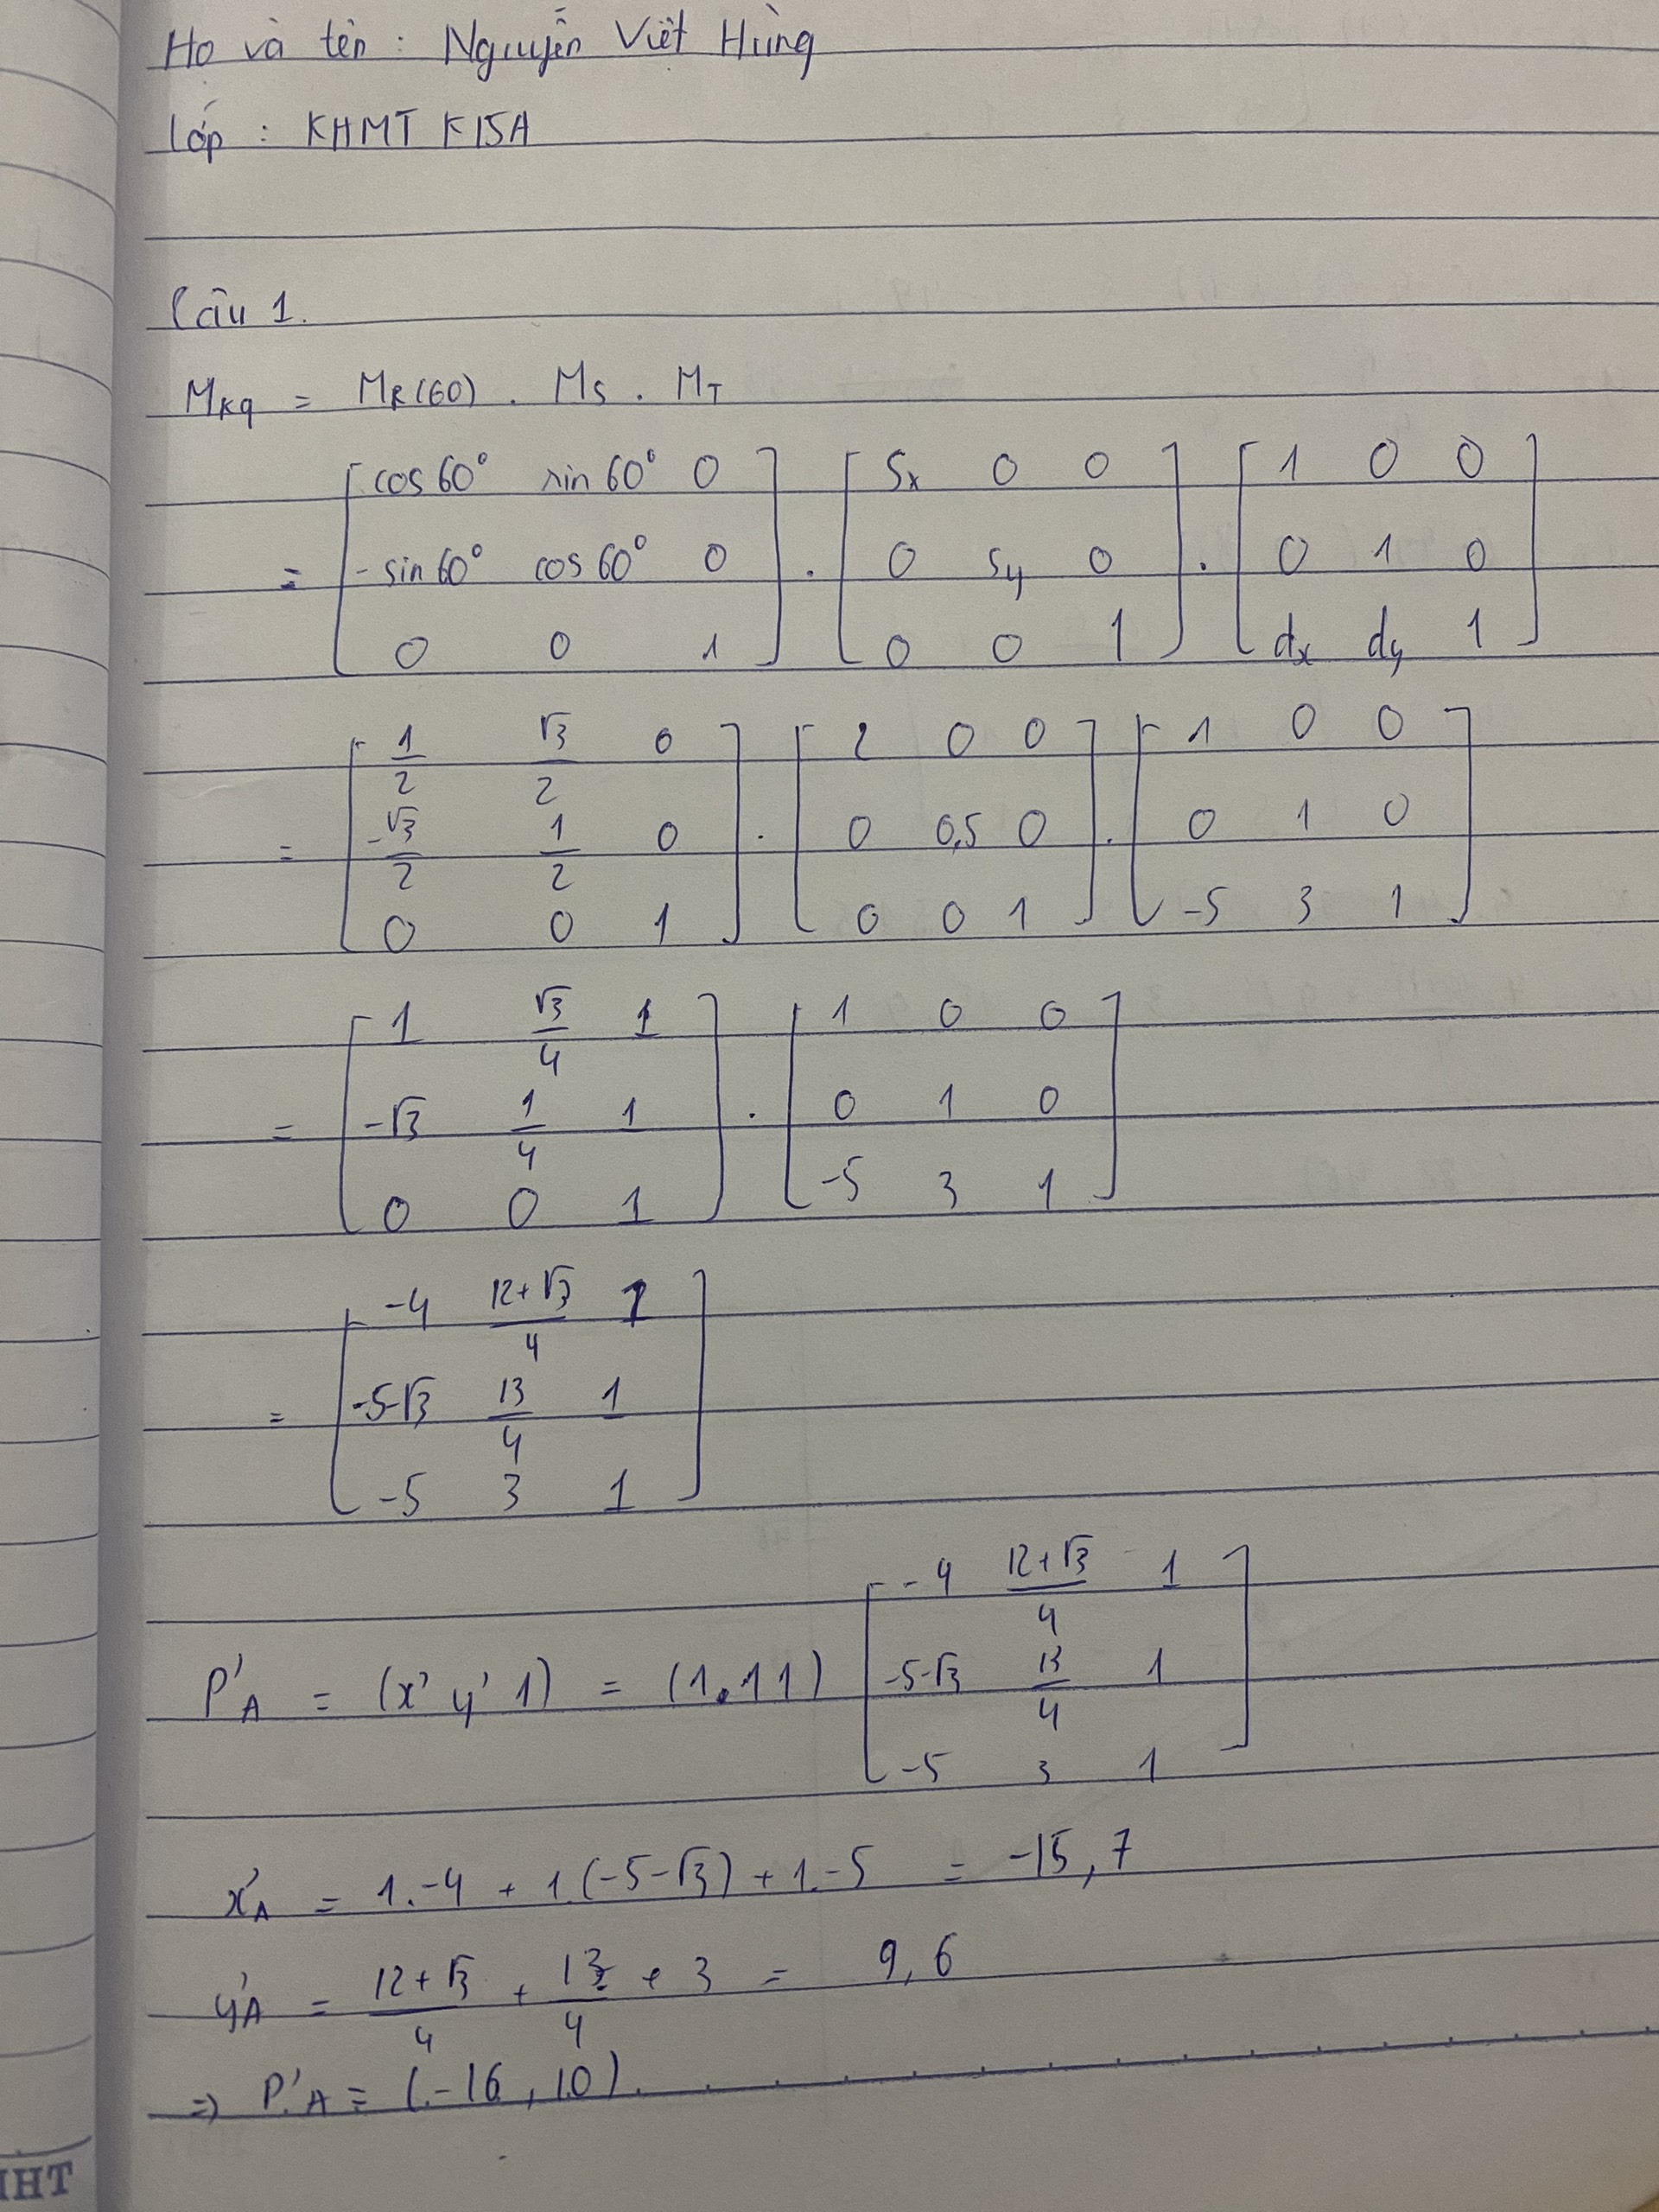 Họ và tên : Nguyễn Việt Hùng
Lớp : KHMT K15A
Câu 1.
M_Kq = M_R(60) . M_S . M_T
= [ cos60° sin60° 0 ; -sin60° cos60° 0 ; 0 0 1 ] . [ Sx 0 0 ; 0 Sy 0 ; 0 0 1 ] . [ 1 0 0 ; 0 1 0 ; dx dy 1 ]
= [ 1/2 √3/2 0 ; -√3/2 1/2 0 ; 0 0 1 ] . [ 2 0 0 ; 0 0,5 0 ; 0 0 1 ] . [ 1 0 0 ; 0 1 0 ; -5 3 1 ]
= [ 1 √3/4 1 ; -√3 1/4 1 ; 0 0 1 ] . [ 1 0 0 ; 0 1 0 ; -5 3 1 ]
= [ -4 12+√3/4 1 ; -5-√3 13/4 1 ; -5 3 1 ]
P'A = (x' y' 1) = (1.11) [ -4 12+√3/4 1 ; -5-√3 13/4 1 ; -5 3 1 ]
x'A = 1.-4 + 1.(-5-√3) + 1.-5 = -15,7
y'A = 12+√3/4 + 13/4 + 3 = 9,6
=> P'A = (-16, 10)
HT